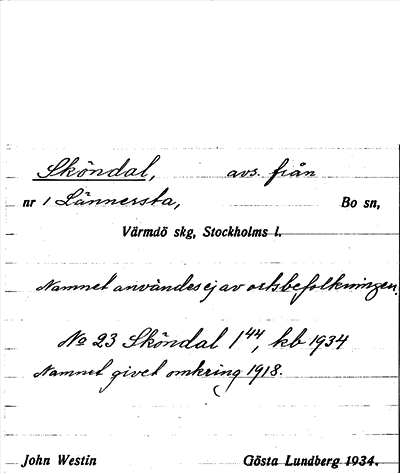 Sköndal, avs. från
nr 1 Lännersta, Bo sn,
Värmdö skg, Stockholms l.
Namnet användes ej av ortsbefolkningen.
No 23 Sköndal 1⁴⁴, kb 1934
Namnet givet omkring 1918.
John Westin Gösta Lundberg 1934.